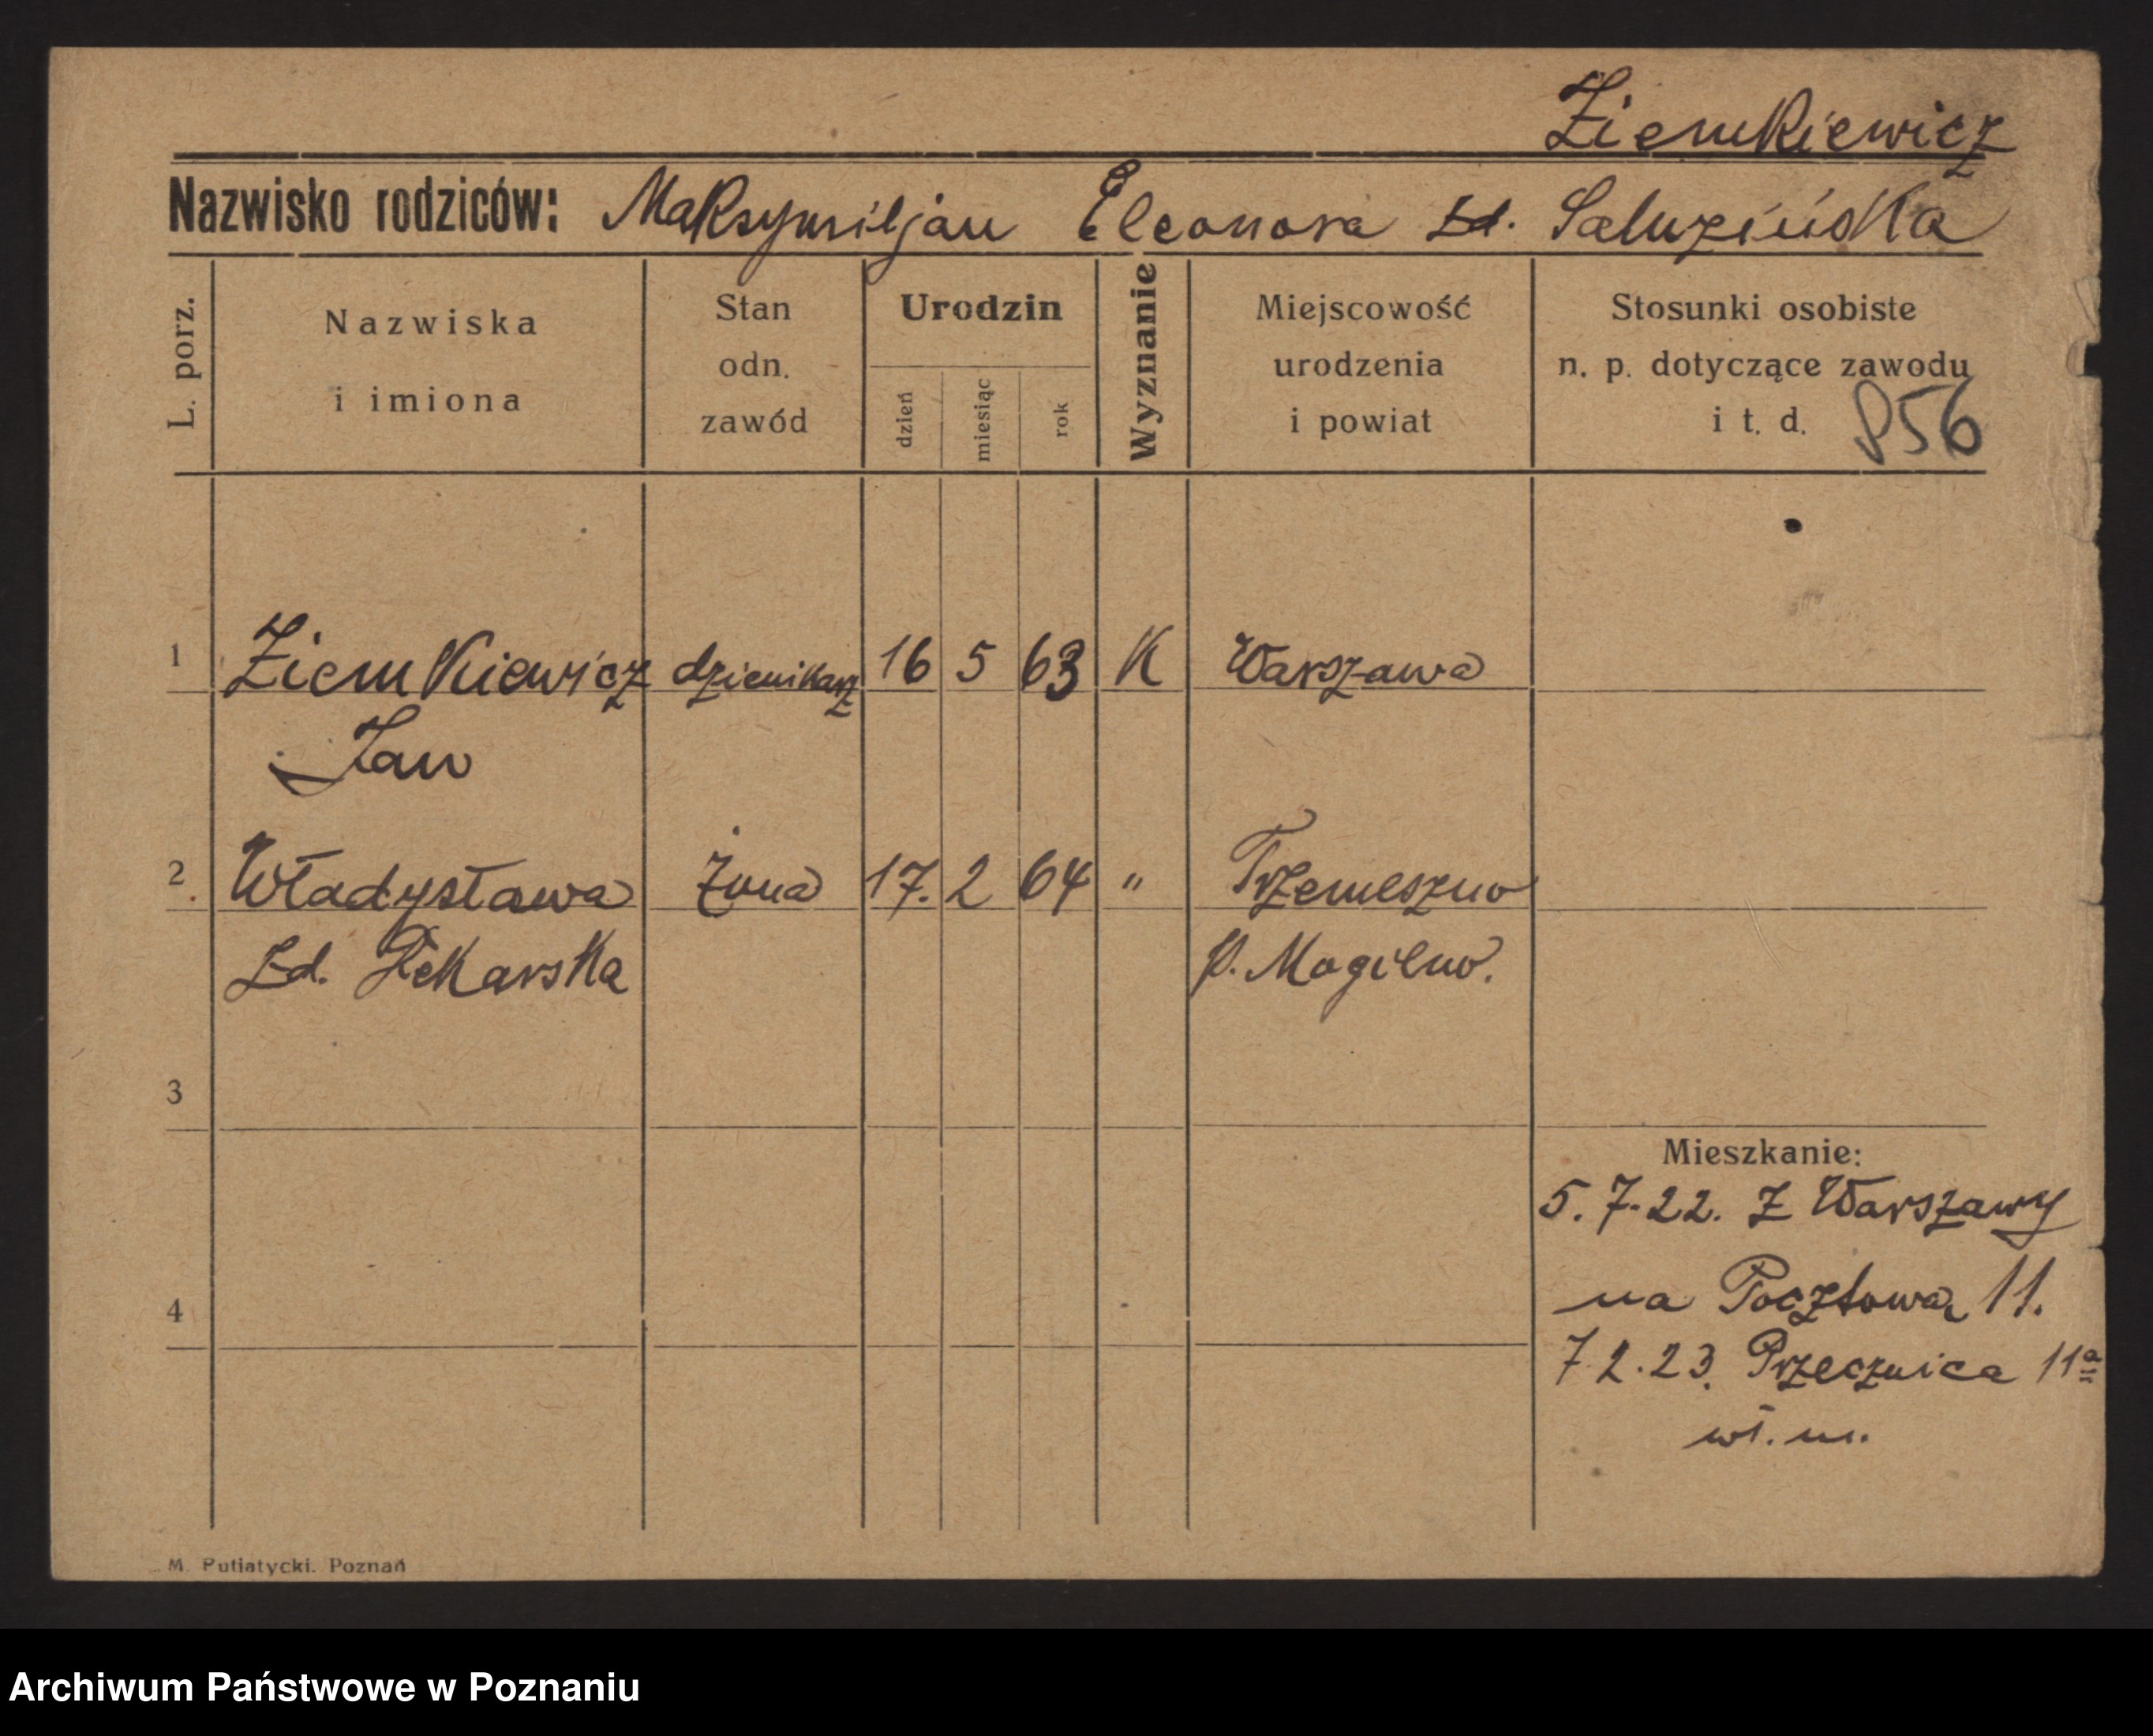 Ziemkiewicz
Nazwisko rodziców: Maksymiljan Eleonora zd. Saluzińska
L. porz.
Nazwiska
i imiona
Stan
odn.
zawód
Urodzin
dzień
miesiąc
rok
Wyznanie
Miejscowość
urodzenia
i powiat
Stosunki osobiste
n. p. dotyczące zawodu
i t. d. 856
1 Ziemkiewicz dzienikarz 16 5 63 K Warszawa
Jan
2 Władysława żona 17. 2 64 " Trzemeszno
zd. Pekarska p. Mogilno.
3
Mieszkanie:
5.7.22. z Warszawy
4 na Pocztową 11.
7.2.23. Przecznica 11a
wł. m.
M. Putiatycki. Poznań
Archiwum Państwowe w Poznaniu